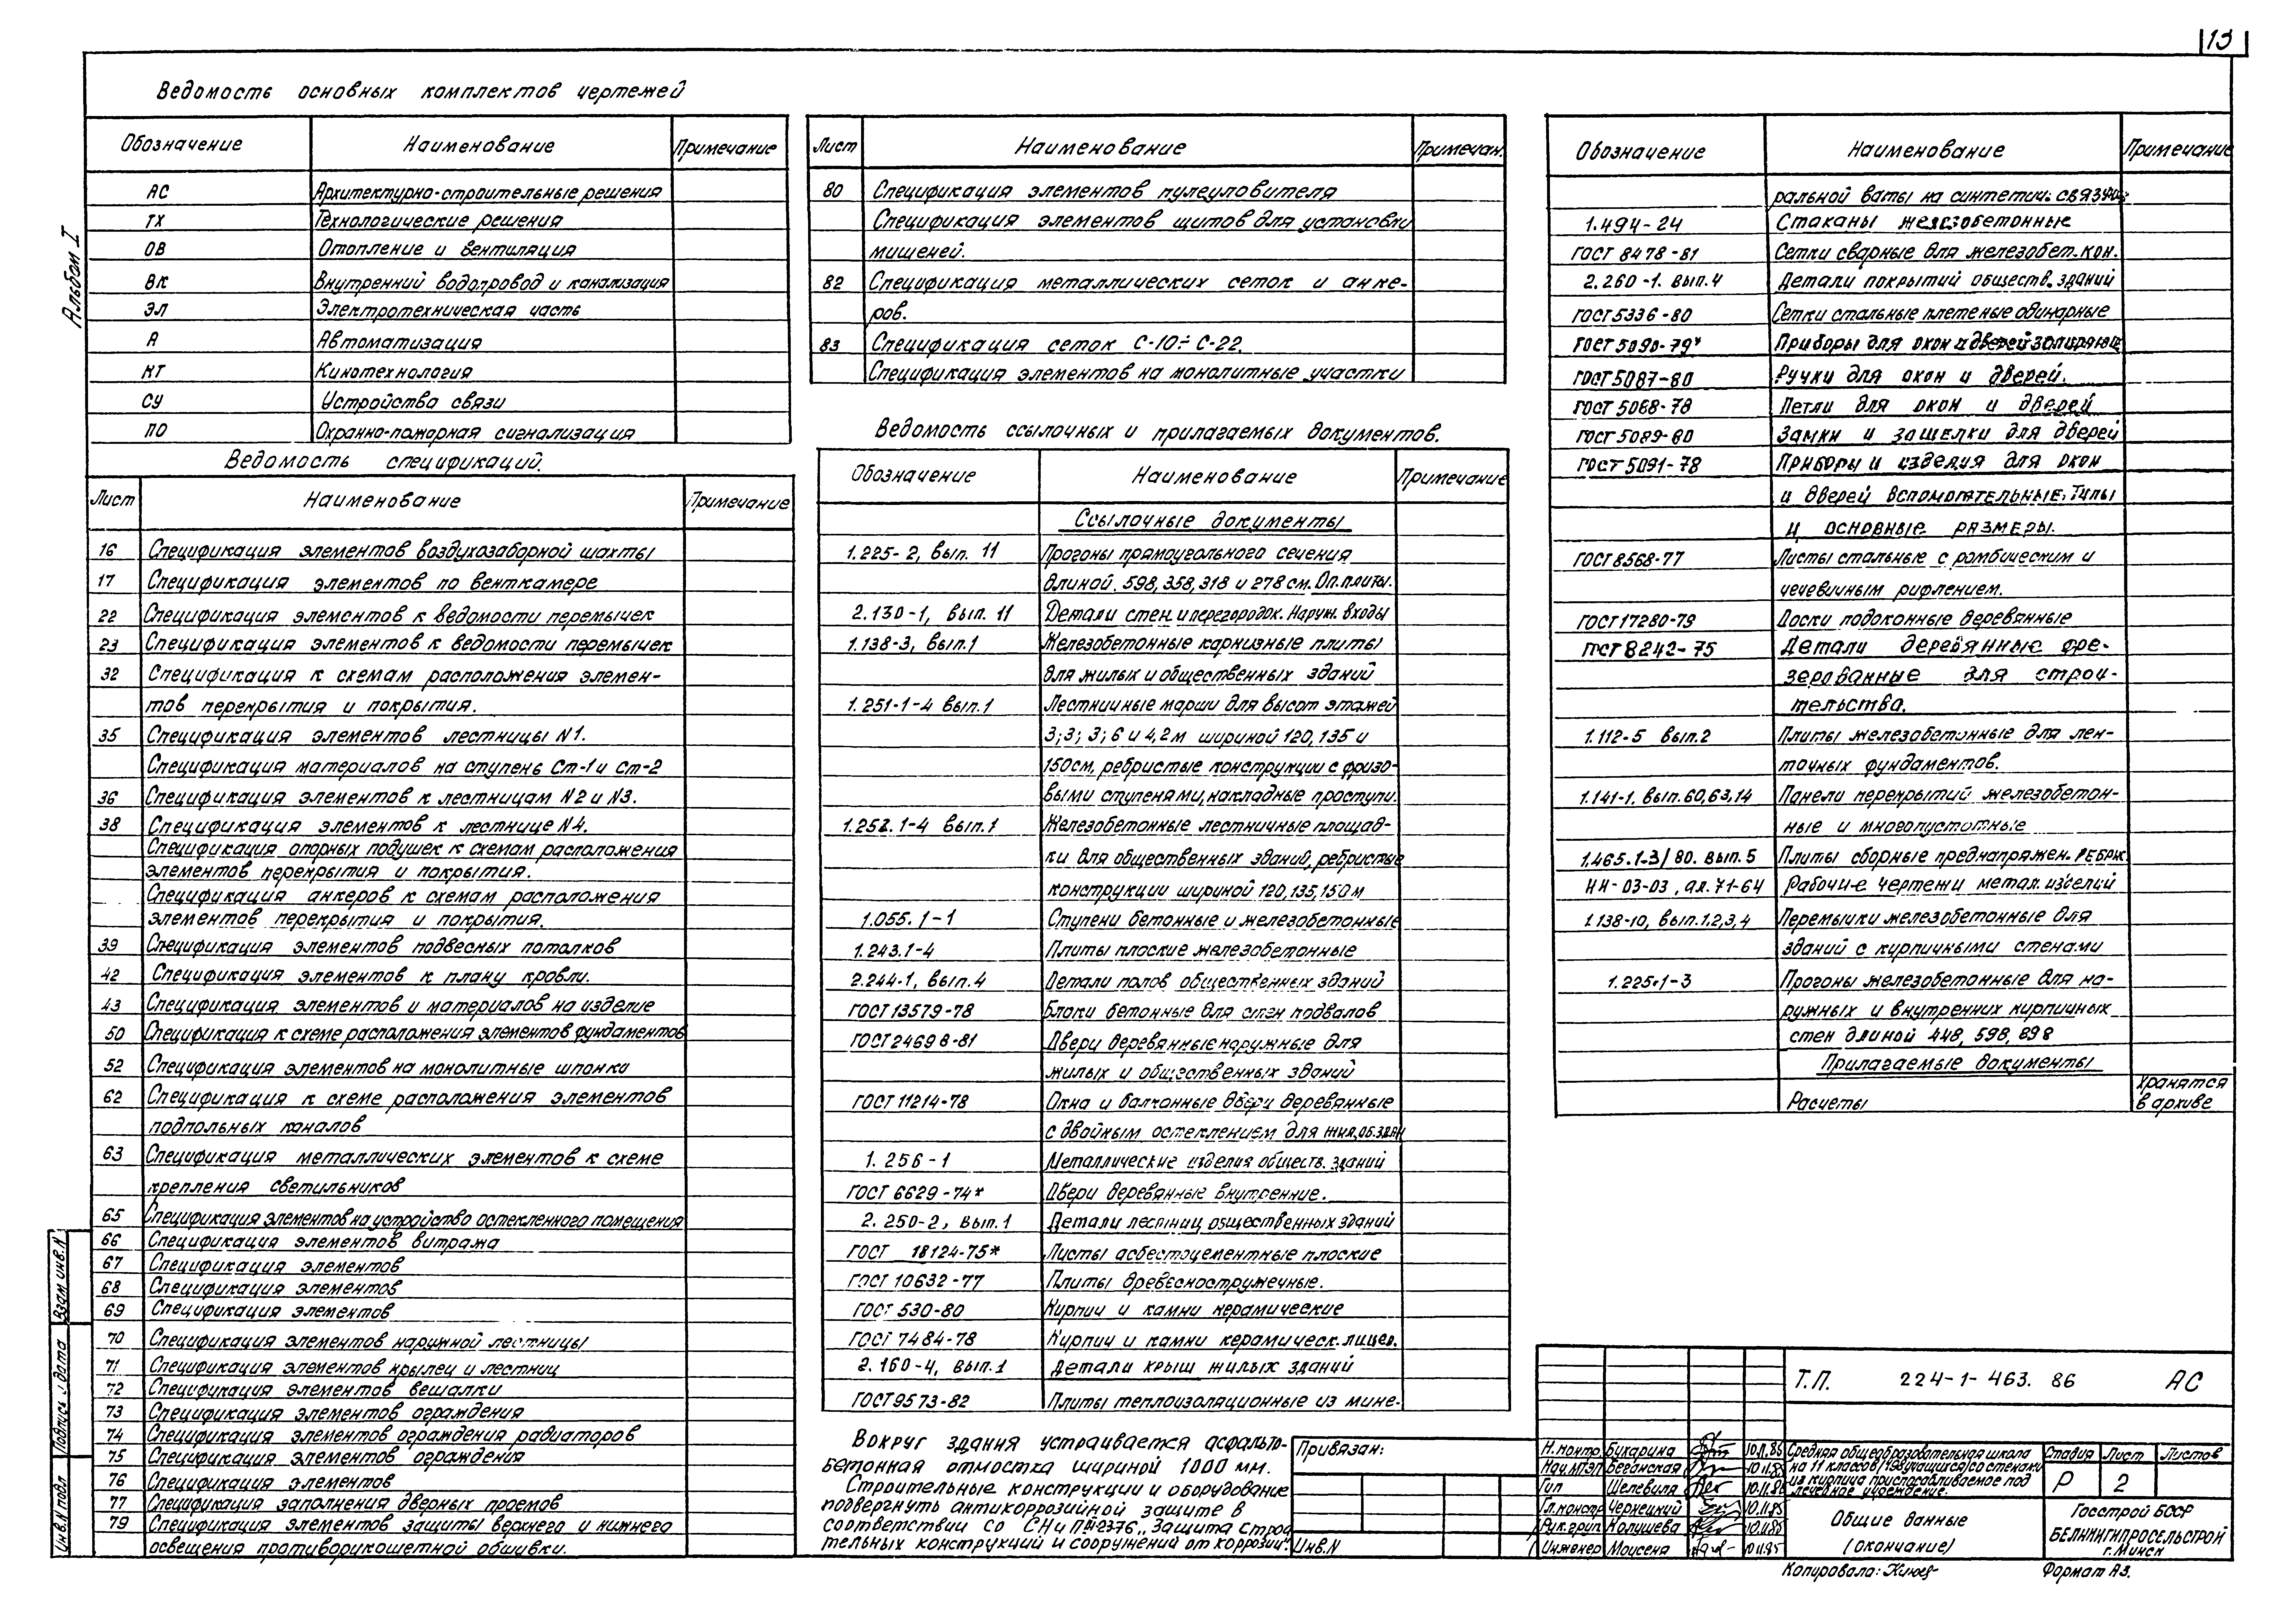 13
Альбом I
Ведомость основных комплектов чертежей
Обозначение Наименование Примечание
АС Архитектурно-строительные решения
ТХ Технологические решения
ОВ Отопление и вентиляция
ВК Внутренний водопровод и канализация
ЭЛ Электротехническая часть
А Автоматизация
КТ Кинотехнология
СУ Устройства связи
ПО Охранно-пожарная сигнализация
Ведомость спецификаций.
Лист Наименование Примечание
16 Спецификация элементов воздухозаборной шахты
17 Спецификация элементов по венткамере
22 Спецификация элементов к ведомости перемычек
23 Спецификация элементов к ведомости перемычек
32 Спецификация к схемам расположения элемен-
тов перекрытия и покрытия.
35 Спецификация элементов лестницы N1.
Спецификация материалов на ступень Ст-1 и Ст-2
36 Спецификация элементов к лестницам N2 и N3.
38 Спецификация элементов к лестнице N4.
Спецификация опорных подушек к схемам расположения
элементов перекрытия и покрытия.
Спецификация анкеров к схемам расположения
элементов перекрытия и покрытия.
39 Спецификация элементов подвесных потолков
42 Спецификация элементов к плану кровли.
43 Спецификация элементов и материалов на изделие
50 Спецификация к схеме расположения элементов фундаментов
52 Спецификация элементов на монолитные шпонки
62 Спецификация к схеме расположения элементов
подпольных каналов
63 Спецификация металлических элементов к схеме
крепления светильников
65 Спецификация элементов на устройство остекленного помещения
66 Спецификация элементов витража
67 Спецификация элементов
68 Спецификация элементов
69 Спецификация элементов
70 Спецификация элементов наружной лестницы
71 Спецификация элементов крылец и лестниц
72 Спецификация элементов вешалки
73 Спецификация элементов ограждения
74 Спецификация элементов ограждения радиаторов
75 Спецификация элементов ограждения
76 Спецификация элементов
77 Спецификация заполнения дверных проемов
79 Спецификация элементов защиты верхнего и нижнего
освещения противорикошетной обшивки.
Взам инв.N
Подпись и дата
Инв.N подл
Лист Наименование Примечан.
80 Спецификация элементов пулеуловителя
Спецификация элементов щитов для установки
мишеней.
82 Спецификация металлических сеток и анке-
ров.
83 Спецификация сеток С-10÷С-22.
Спецификация элементов на монолитные участки
Ведомость ссылочных и прилагаемых документов.
Обозначение Наименование Примечание
Ссылочные документы
1.225-2, вып. 11 Прогоны прямоугольного сечения
длиной. 598, 358, 318 и 278 см. Оп. плиты.
2.130-1, вып. 11 Детали стен и перегородок. Наруж. входы
1.138-3, вып.1 Железобетонные карнизные плиты
для жилых и общественных зданий
1.251-1-4 вып.1 Лестничные марши для высот этажей
3; 3; 3; 6 и 4,2м шириной 120, 135 и
150см, ребристые конструкции с фризо-
выми ступенями, накладные проступи.
1.252.1-4 вып.1 Железобетонные лестничные площад-
ки для общественных зданий, ребристые
конструкции шириной 120, 135, 150м
1.055.1-1 Ступени бетонные и железобетонные
1.243.1-4 Плиты плоские железобетонные
2.244-1, вып.4 Детали полов общественных зданий
ГОСТ 13579-78 Блоки бетонные для стен подвалов
ГОСТ 24698-81 Двери деревянные наружные для
жилых и общественных зданий
ГОСТ 11214-78 Окна и балконные двери деревянные
с двойным остеклением для жил, об.здан
1.256-1 Металлические изделия обществ. зданий
ГОСТ 6629-74* Двери деревянные внутренние.
2.250-2, вып.1 Детали лестниц общественных зданий
ГОСТ 18124-75* Листы асбестоцементные плоские
ГОСТ 10632-77 Плиты древесностружечные.
ГОСТ 530-80 Кирпич и камни керамические
ГОСТ 7484-78 Кирпич и камни керамическ. лицев.
2.160-4, вып.1 Детали крыш жилых зданий
ГОСТ 9573-82 Плиты теплоизоляционные из мине-
Вокруг здания устраивается асфальто-
бетонная отмостка шириной 1000 мм.
Строительные конструкции и оборудование
подвергнуть антикоррозийной защите в
соответствии со СНиП III-23-76 „Защита строи
тельных конструкций и сооружений от коррозии".
Обозначение Наименование Примечание
ральной ваты на синтетич. связующ
1.494-24 Стаканы железобетонные
ГОСТ 8478-81 Сетки сварные для железобет. кон.
2.260-1. вып.4 Детали покрытий обществ. зданий
ГОСТ 5336-80 Сетки стальные плетеные одинарные
ГОСТ 5090-79* Приборы для окон и дверей запирающ
ГОСТ 5087-80 Ручки для окон и дверей.
ГОСТ 5088-78 Петли для окон и дверей
ГОСТ 5089-80 Замки и защелки для дверей
ГОСТ 5091-78 Приборы и изделия для окон
и дверей вспомогательные. Типы
и основные размеры.
ГОСТ 8568-77 Листы стальные с ромбическим и
чечевичным рифлением.
ГОСТ 17280-79 Доски подоконные деревянные
ГОСТ 8242-75 Детали деревянные фре-
зерованные для строи-
тельства.
1.112-5 вып.2 Плиты железобетонные для лен-
точных фундаментов.
1.141-1. вып.60,63,14 Панели перекрытий железобетон-
ные и многопустотные
1.465.1-3/80. вып.5 Плиты сборные преднапряжен. ребрис
ИИ-03-03, ал.71-64 Рабочие чертежи метал. изделий
1.138-10, вып.1.2,3,4 Перемычки железобетонные для
зданий с кирпичными стенами
1.225.1-3 Прогоны железобетонные для на-
ружных и внутренних кирпичных
стен длиной 448, 598, 898
Прилагаемые документы
Расчеты хранятся
в архиве
Привязан:
Инв.N
Т.П. 224-1-463.86 АС
Н.контр Букарина 10.11.85
Нач.МТЭП Беганская 10.11.85
Гип Шелевиля 10.11.85
Гл.констр Чернецкий 10.11.85
Рук.груп Колушева 10.11.85
Инженер Моусеня 10.11.85
Средняя общеобразовательная школа
на 11 классов/198учащихся/со стенами
из кирпича приспосабливаемое под
лечебное учреждение.
Стадия Лист Листов
Р 2
Общие данные
(окончание)
Госстрой БССР
БЕЛНИИГИПРОСЕЛЬСТРОЙ
г.Минск
Копировала:
Формат А3.